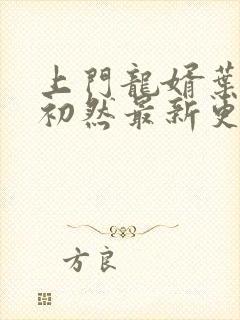 上門龍婿葉
初然最新更
方良